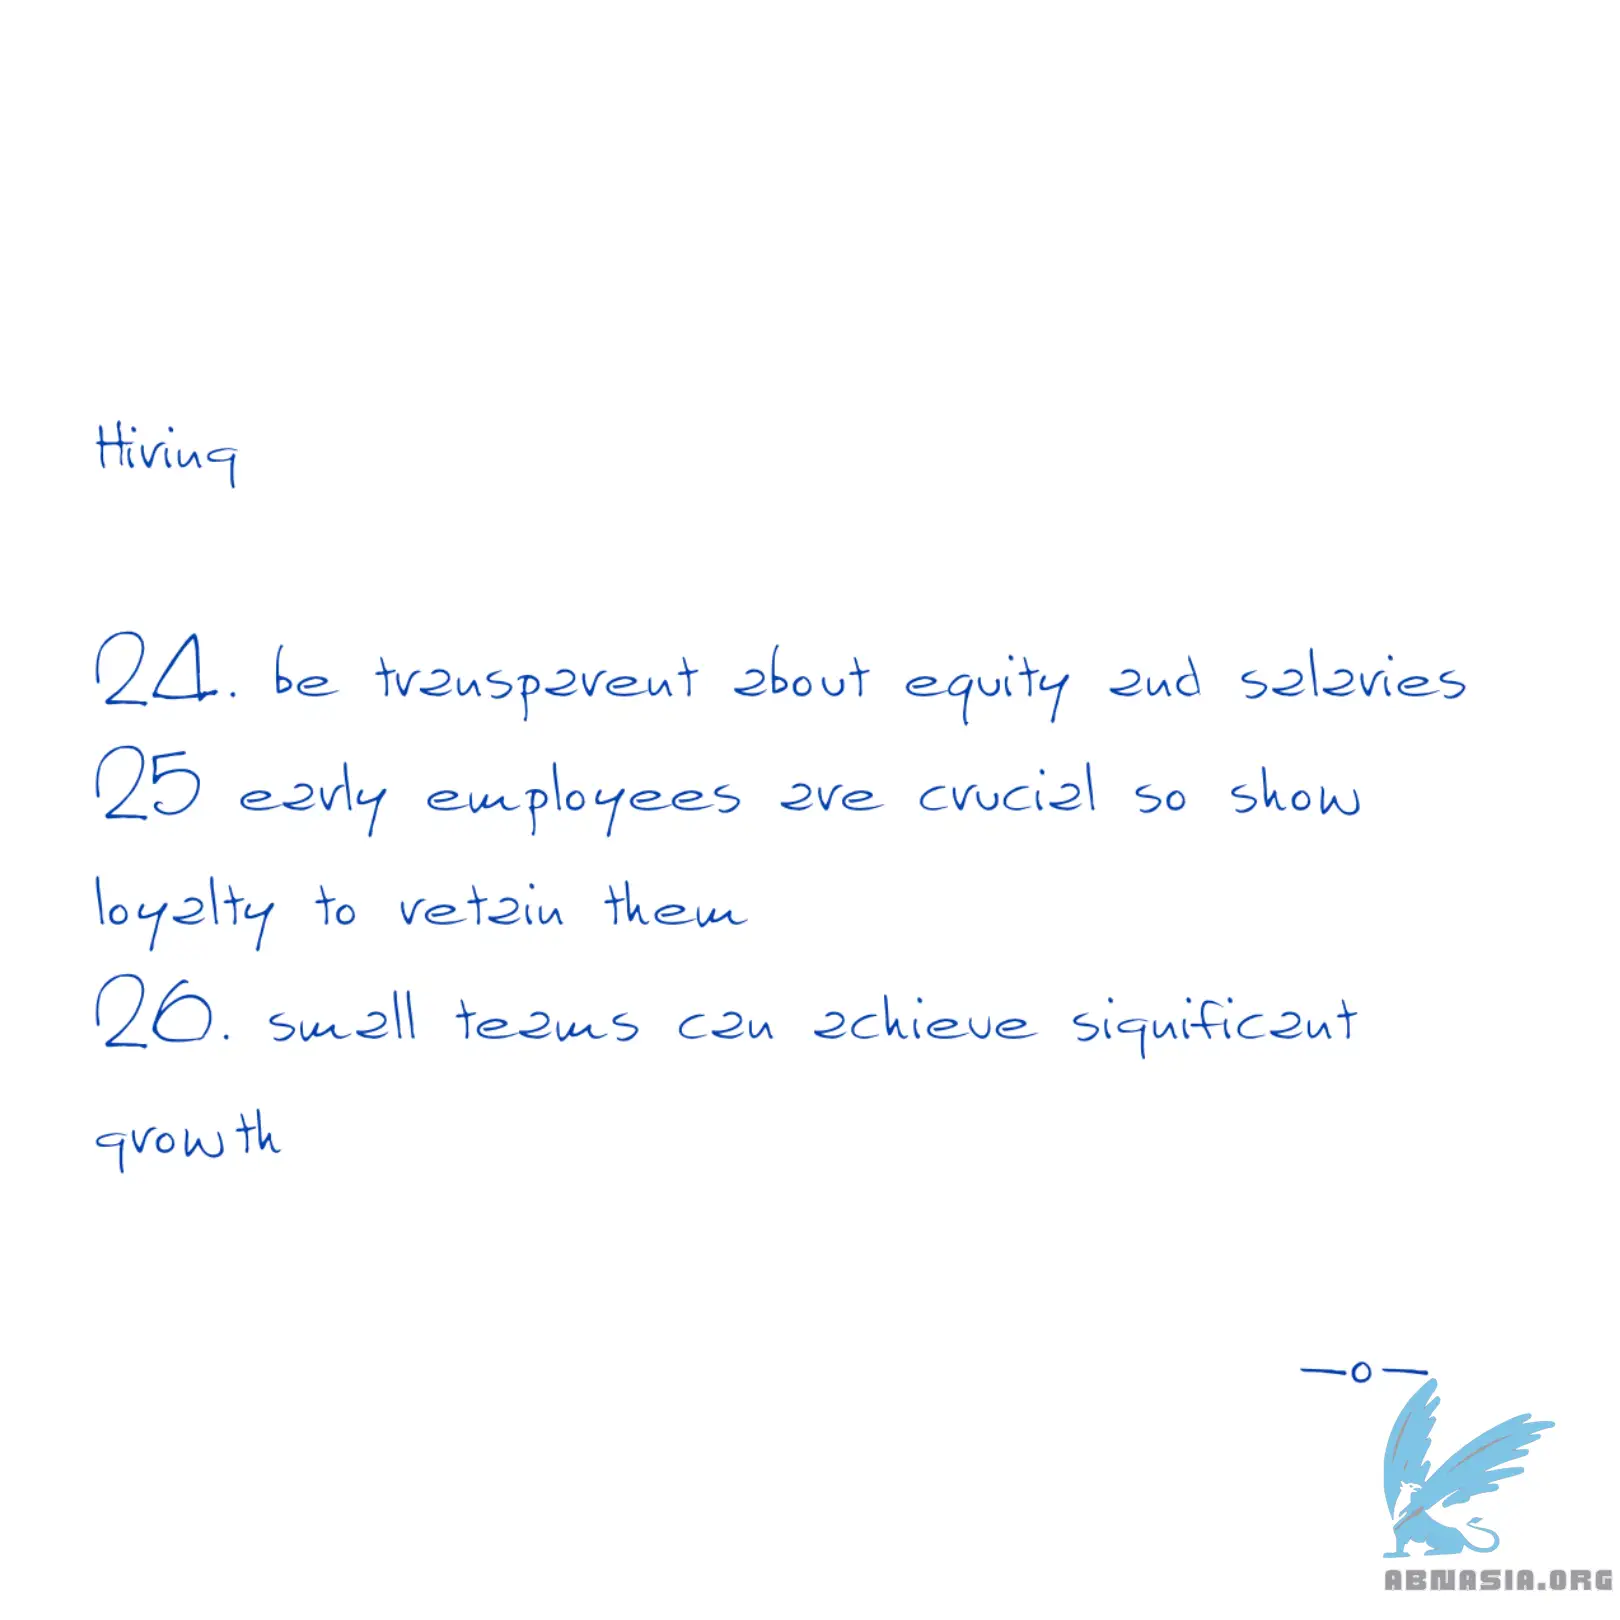 Hiring
24. be transparent about equity and salaries
25 early employees are crucial so show
loyalty to retain them
26. small teams can achieve significant
growth
—o—
ABNASIA.ORG